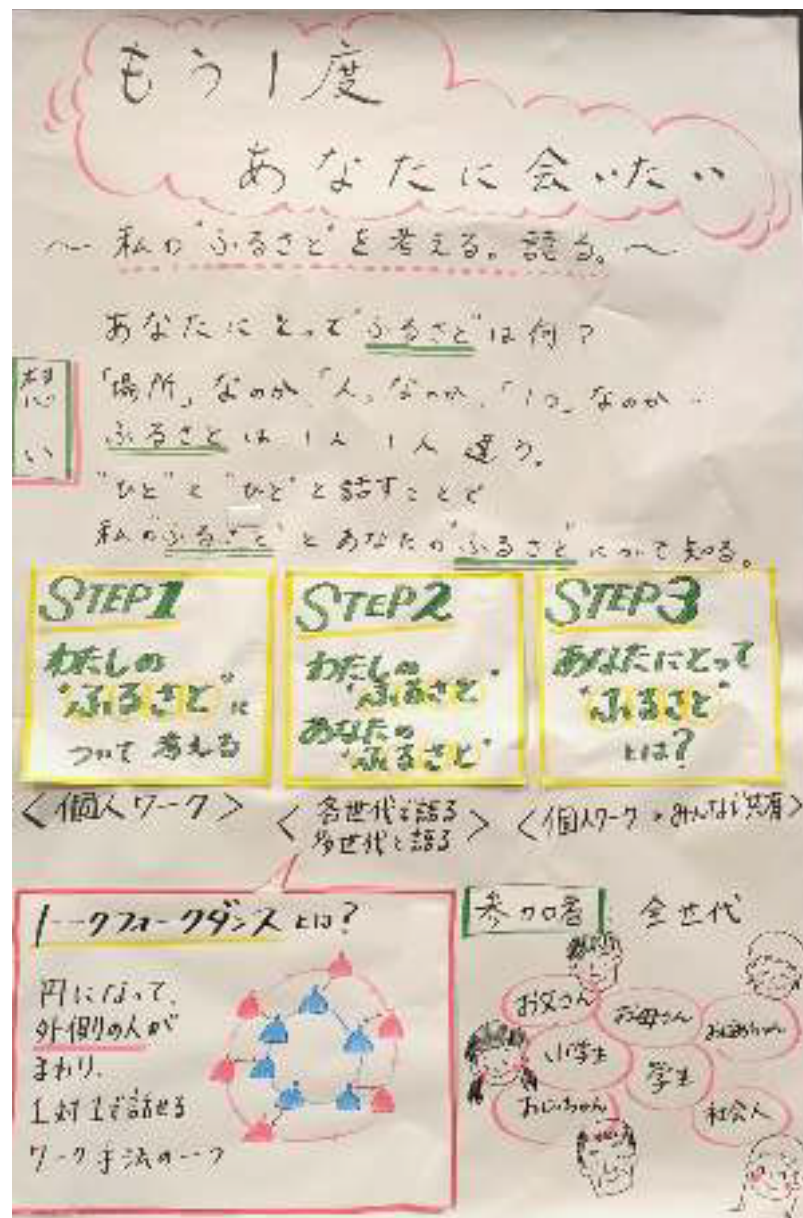 もう1度
あなたに会いたい
～ 私の"ふるさと"を考える。語る。～
想い
あなたにとって"ふるさと"は何?
「場所」なのか「人」なのか、「」なのか…
ふるさとは1人1人違う。
"ひと"と"ひと"と話すことで
私の"ふるさと"とあなたの"ふるさと"について知る。
STEP1
わたしの
"ふるさと"に
ついて考える
<個人ワーク>
STEP2
わたしの
"ふるさと"
あなたの
"ふるさと"
<各世代で語る
多世代と語る>
STEP3
あなたにとって
"ふるさと"
とは?
<個人ワーク・みんなで共有>
トークフォークダンスとは?
円になって、
外側の人が
まわり、
1対1で話せる
ワーク手法の一つ
参加者 全世代
お父さん
お母さん
おばあちゃん
小学生
学生
おじいちゃん
社会人